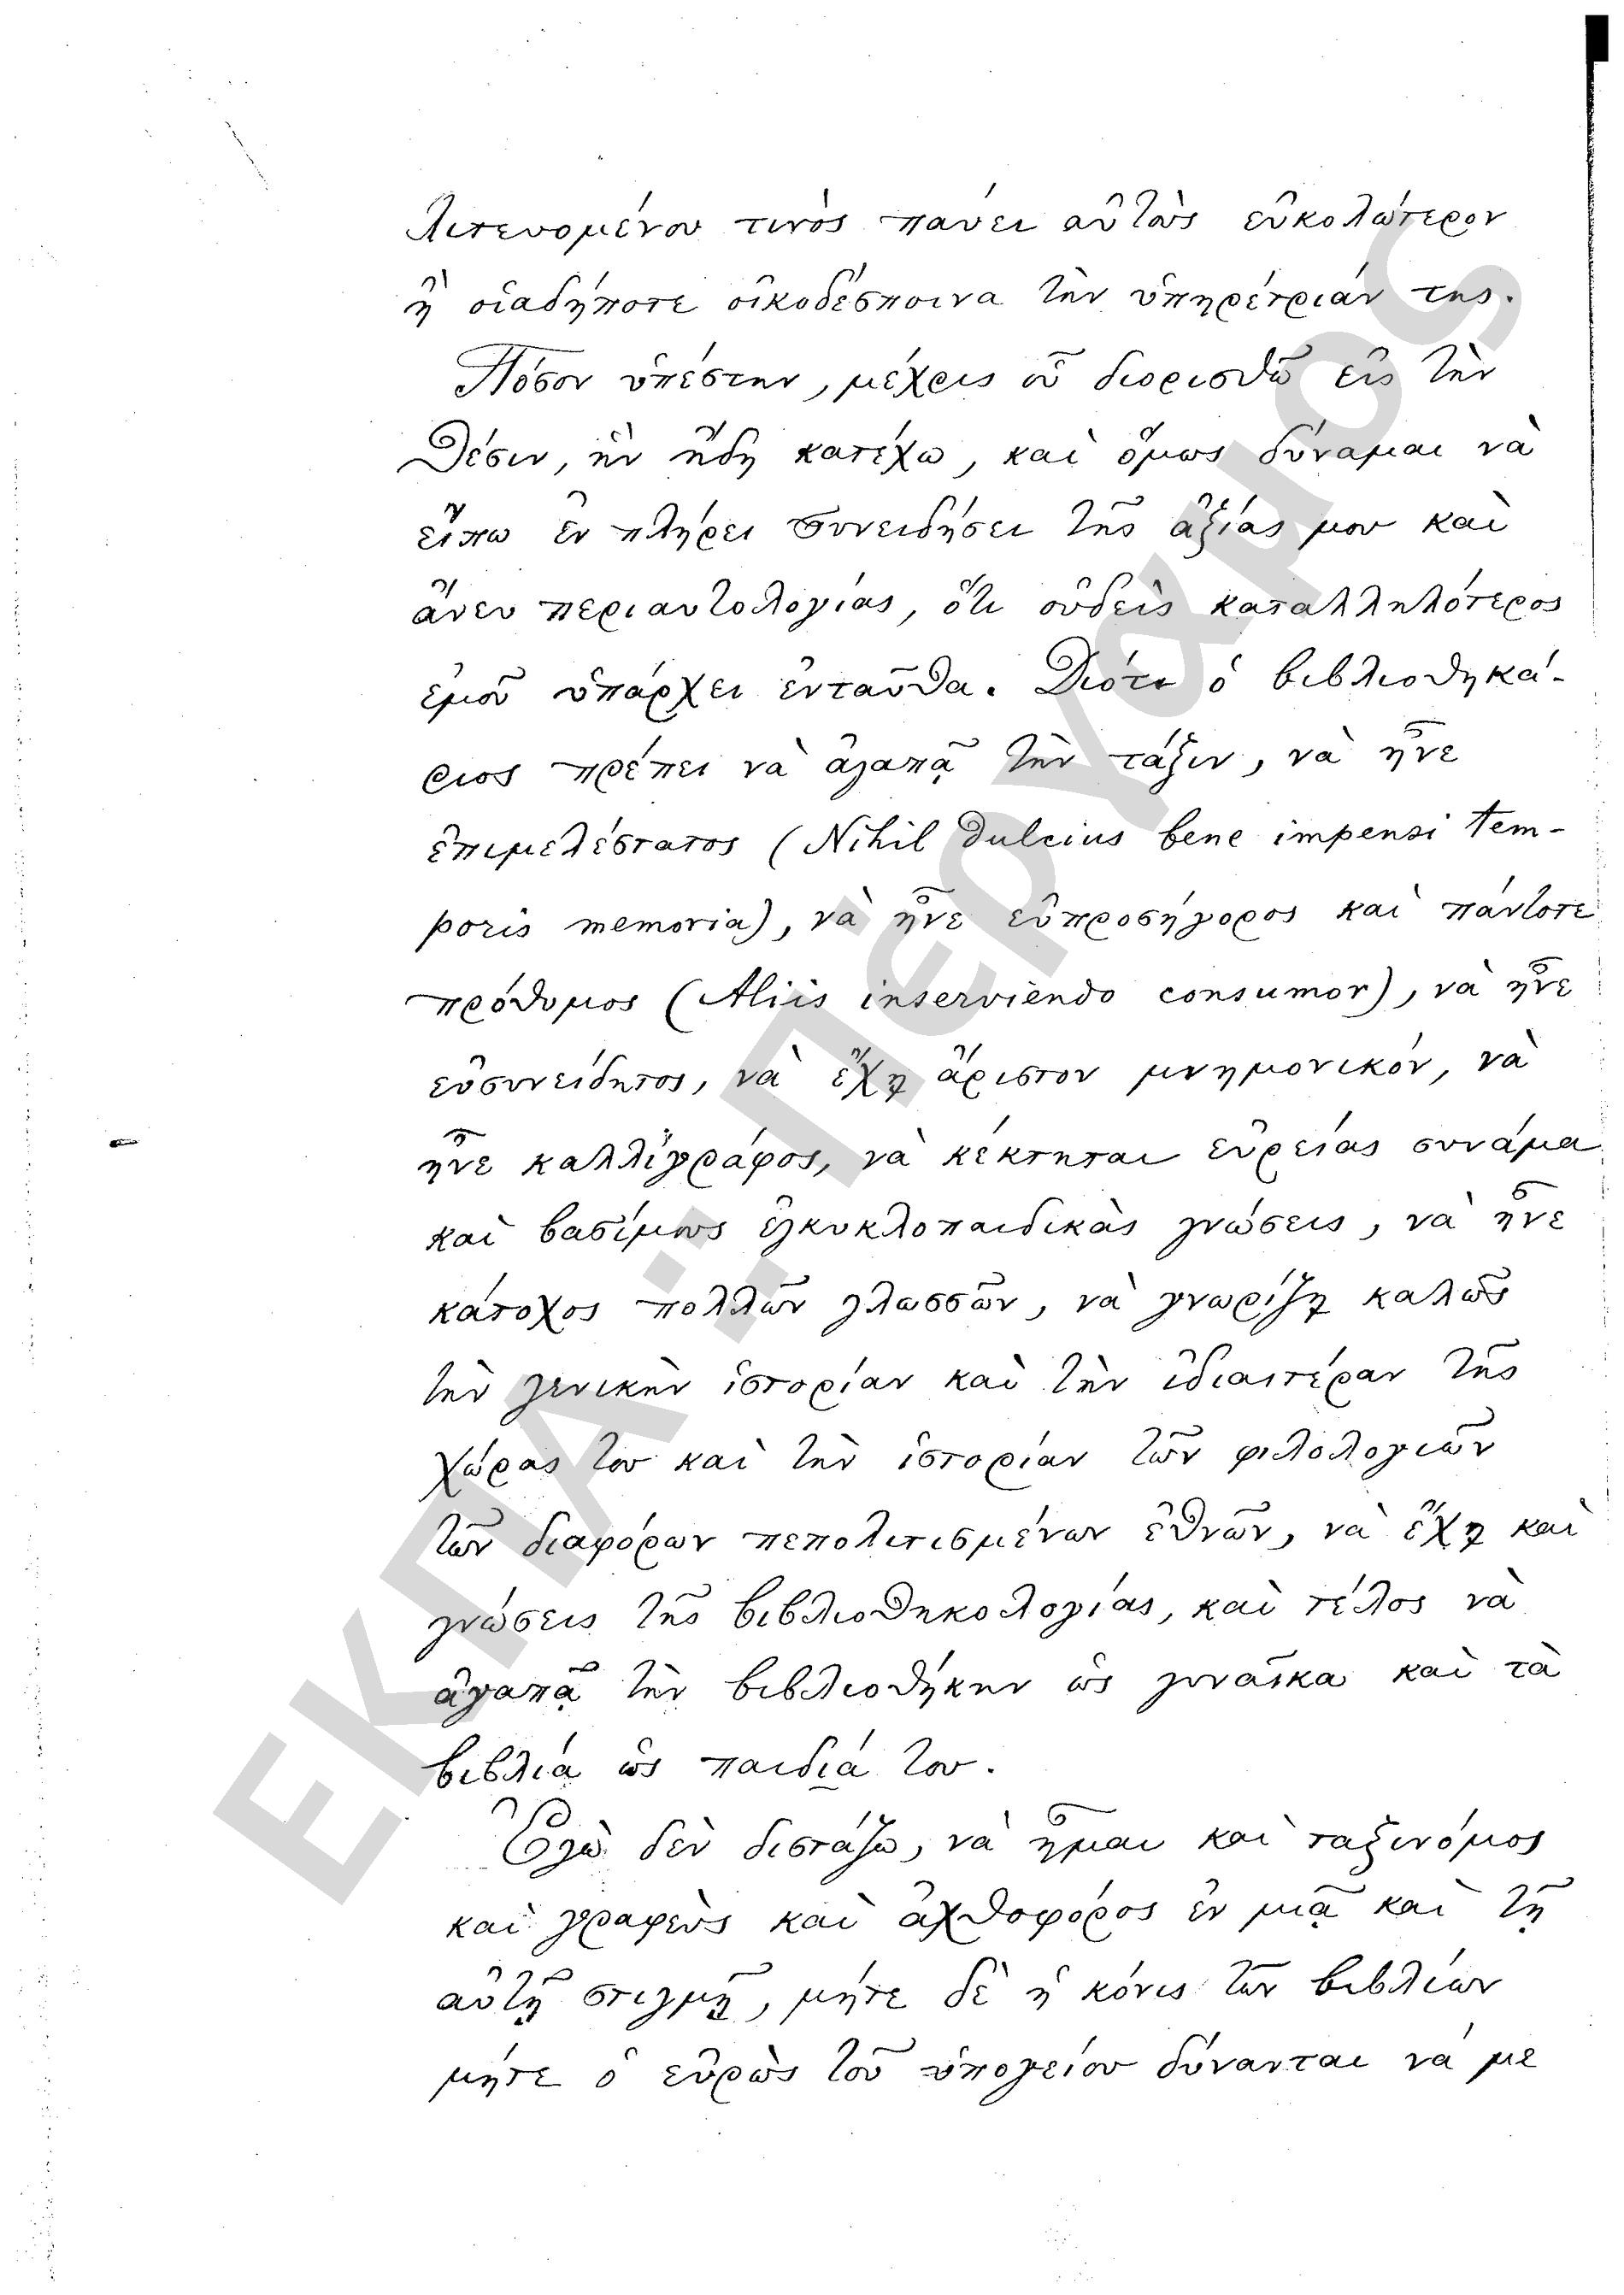 λιτευομένου τινὸς παύει αὐτοὺς εὐκολώτερον
ἢ οἱαδήποτε οἰκοδέσποινα τὴν ὑπηρέτριάν της.
Πόσον ὑπέστην, μέχρις οὗ διορισθῶ εἰς τὴν
θέσιν, ἣν ἤδη κατέχω, καὶ ὅμως δύναμαι νὰ
εἴπω ἐν πλήρει συνειδήσει τῆς ἀξίας μου καὶ
ἄνευ περιαυτολογίας, ὅτι οὐδεὶς καταλληλότερος
ἐμοῦ ὑπάρχει ἐνταῦθα. Διότι ὁ βιβλιοθηκά-
ριος πρέπει νὰ ἀγαπᾷ τὴν τάξιν, νὰ ἦνε
ἐπιμελέστατος (Nihil dulcius bene impensi tem-
poris memoria), νὰ ἦνε εὐπροσήγορος καὶ πάντοτε
πρόθυμος (Aliis inserviendo consumor), νὰ ἦνε
εὐσυνείδητος, νὰ ἔχῃ ἄριστον μνημονικόν, νὰ
ἦνε καλλιγράφος, νὰ κέκτηται εὐρείας συνάμα
καὶ βασίμους ἐγκυκλοπαιδικὰς γνώσεις, νὰ ἦνε
κάτοχος πολλῶν γλωσσῶν, νὰ γνωρίζῃ καλῶς
τὴν γενικὴν ἱστορίαν καὶ τὴν ἰδιαιτέραν τῆς
χώρας του καὶ τὴν ἱστορίαν τῶν φιλολογιῶν
τῶν διαφόρων πεπολιτισμένων ἐθνῶν, νὰ ἔχῃ καὶ
γνώσεις τῆς βιβλιοθηκολογίας, καὶ τέλος νὰ
ἀγαπᾷ τὴν βιβλιοθήκην ὡς γυναῖκα καὶ τὰ
βιβλία ὡς παιδιά του.
Ἐγὼ δὲν διστάζω, νὰ ἦμαι καὶ ταξινόμος
καὶ γραφεὺς καὶ ἀχθοφόρος ἐν μιᾷ καὶ τῇ
αὐτῇ στιγμῇ, μήτε δὲ ἡ κόνις τῶν βιβλίων
μήτε ὁ εὐρὼς τοῦ ὑπογείου δύνανται νά με
ΕΚΠΑ - Πέργαμος